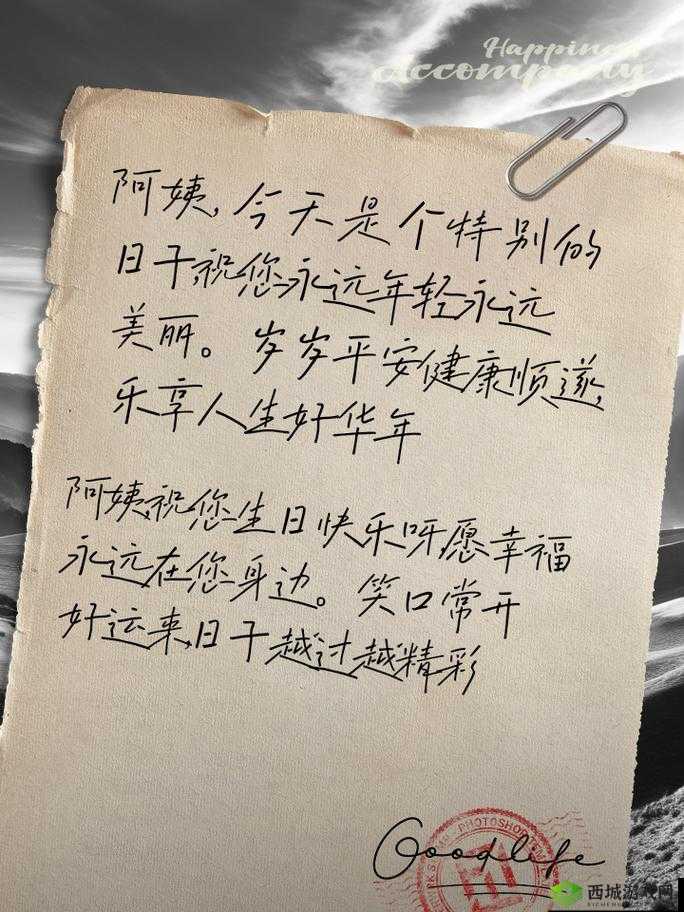 Happiness
Accompany
阿姨，今天是个特别的
日子，祝您永远年轻永远
美丽。岁岁平安健康顺遂，
乐享人生好华年
阿姨，祝您生日快乐呀愿幸福
永远在您身边。笑口常开
好运来，日子越过越精彩
PHOTOSHOP
Goodlife
西城游戏网